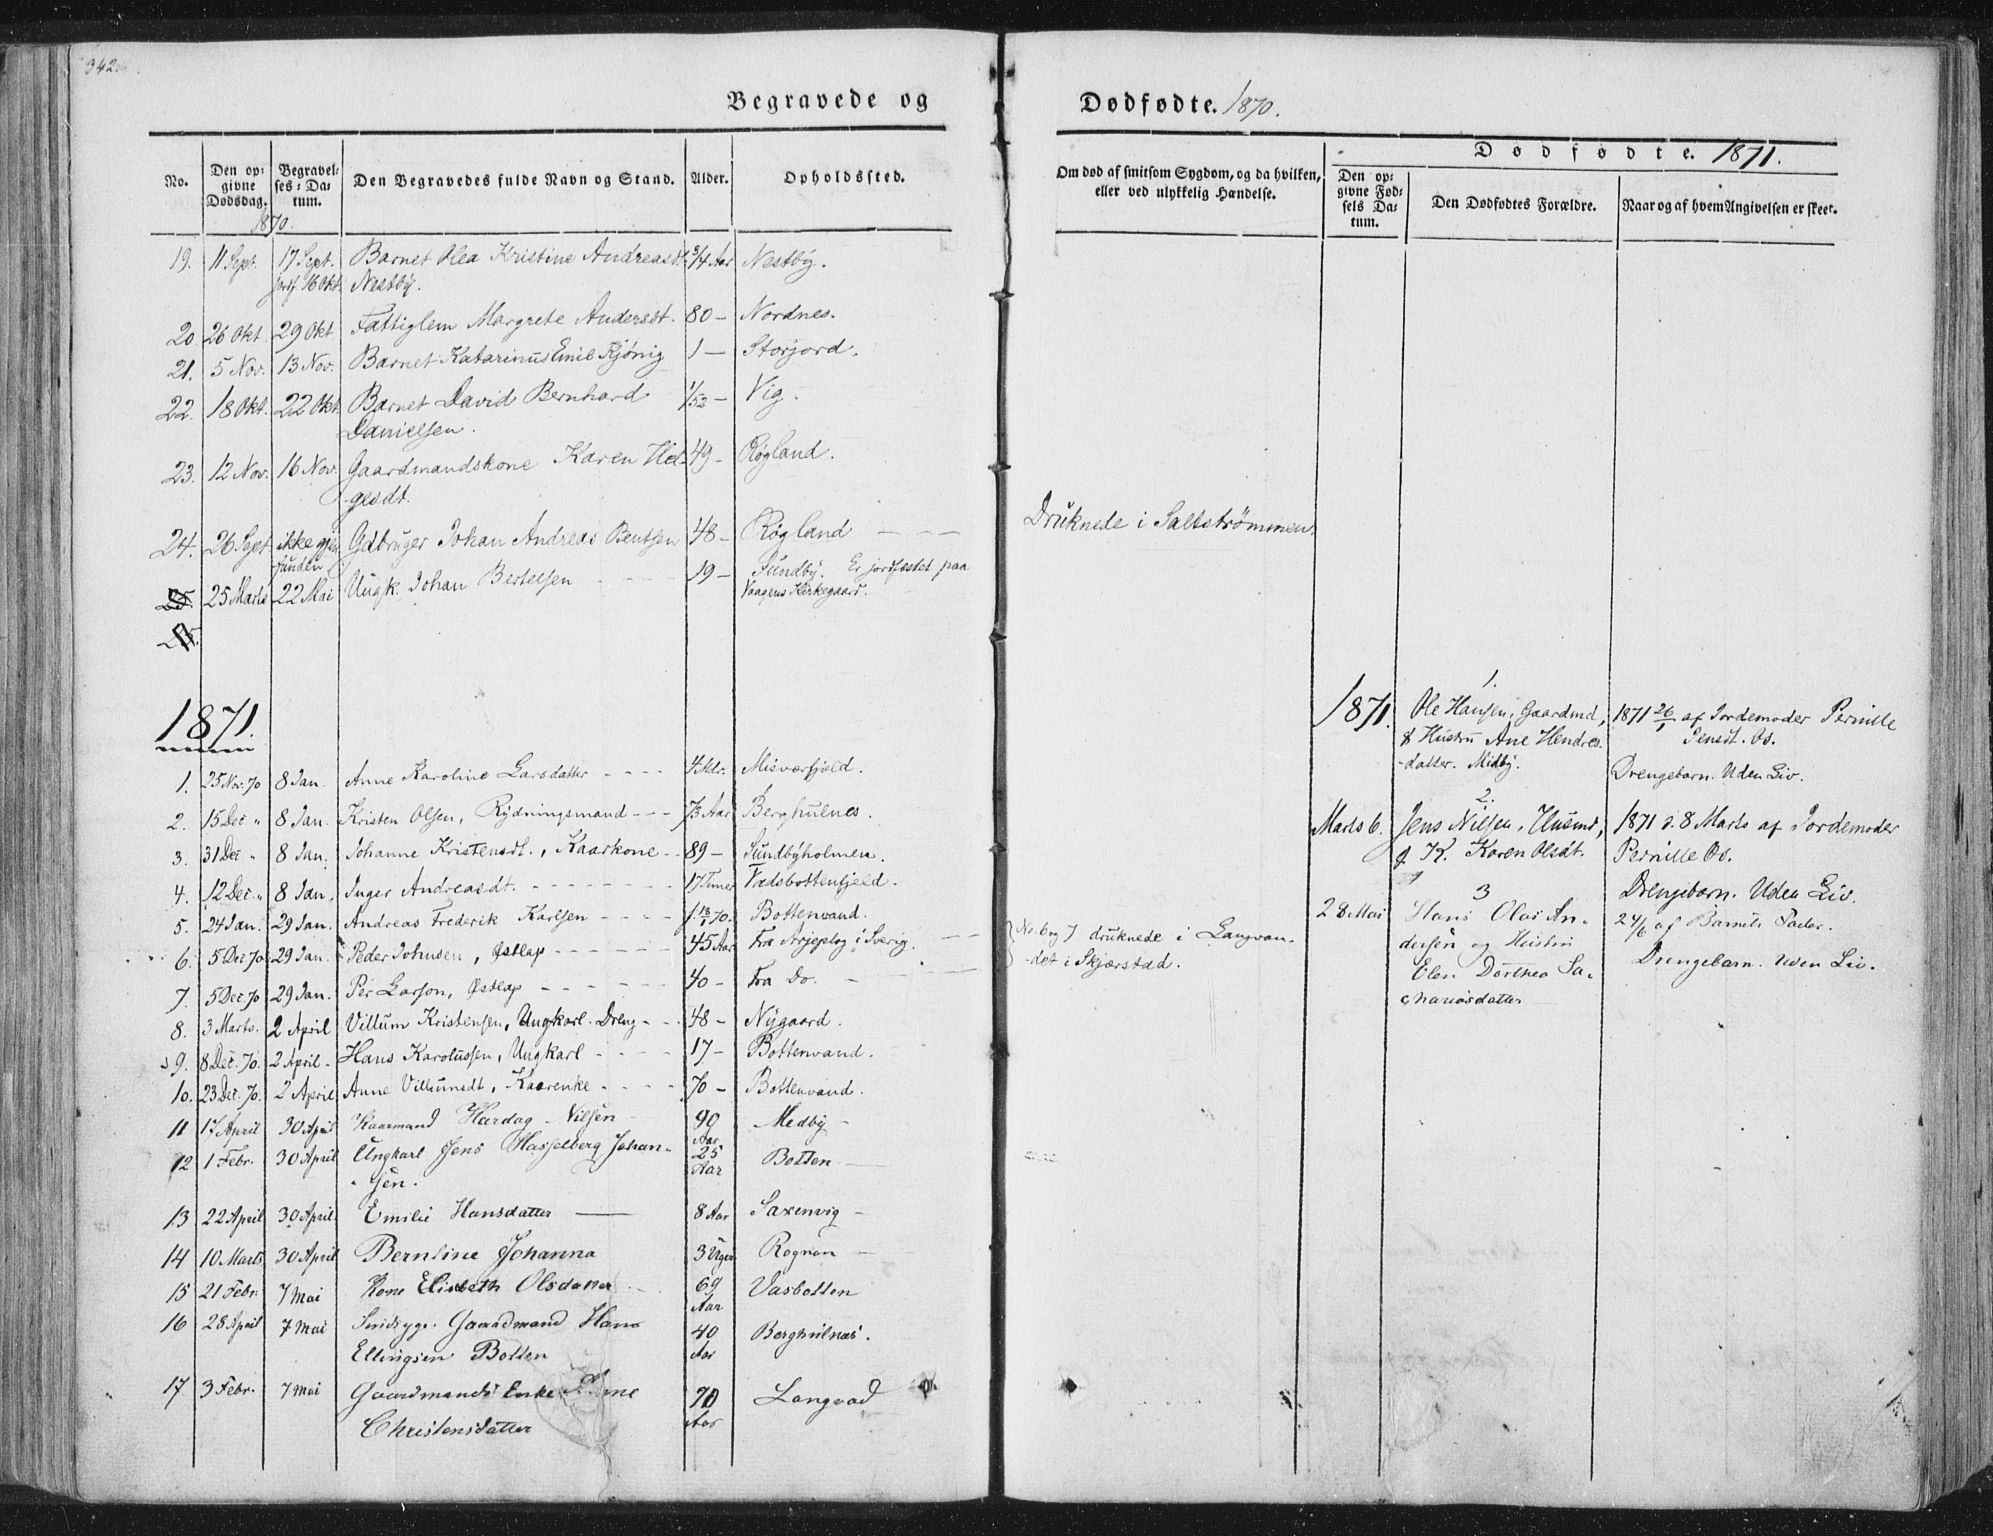 342.
Begravede og
Dødfødte. 1870.
No.
Den op-
givne
Dødsdag.
Begravel-
ses-Da-
tum.
Den Begravedes fulde Navn og Stand.
Alder.
Opholdssted.
Om død af smitsom Sygdom, og da hvilken,
eller ved ulykkelig Hændelse.
Dødfødte. 1871.
Den op-
givne Fød-
sels Da-
tum.
Den Dødfødtes Forældre.
Naar og af hvem Angivelsen er skeet.
1870.
19. 11 Sept. 17 Sept. Barnet Olea Kristine Andreasdt. 3/4 Aar Nestby.
jordf 16 Okt. Nestby.
20. 26 Okt. 29 Okt. Fattiglem Margrete Andersdt. 80 - Nordnes.
21. 5 Nov. 13 Nov. Barnet Katarinus Emil Kjønig 1 - Storjord.
22. 18 Okt. 22 Okt. Barnet David Bernhard 1/52 - Vig.
Danielsen.
23. 12 Nov. 16 Nov. Gaardmandskone Karen Hel- 49 - Røgland.
gesdt.
24. 26 Sept. ikke gjen Gdbruger Johan Andreas Bentsen 48 - Røgland - - - Druknede i Saltstrømmen.
funden
25. 25 Marts 22 Mai Ungk. Johan Bertelsen - - - 19 - Sundby. Er jordfæstet paa
Vaagens Kirkegaard.
1871.
1. 25 Nov. 70 8 Jan. Anne Karoline Larsdatter - - - - 4 Mdr. Misværfjeld.
2. 15 Dec " 8 Jan. Kristen Olsen, Rydningsmand - - - 73 Aar Berghulnes.
3. 31 Dec " 8 Jan. Johanne Kristensdt., Kaarkone - - 89 - Sundbyholmen.
4. 12 Dec. " 8 Jan. Inger Andreasdt. - - - - 17 Timer Vadsbottenfjeld.
5. 24 Jan. 29 Jan. Andreas Frederik Karlsen - - - - Bottenvand.
6. 5 Dec 70 29 Jan. Peder Johnsen, Østlap - - - 45 Aar Fra Arjeplog i Sverig. - -
7. 5 Dec. 70 29 Jan. Per Larson, Østlap - - - - 40 - Fra Do. -
8. 3 Marts. 2 April Villum Kristensen, Ungkarl. Dreng - - 48 - Nygaard.
9. 8 Dec. 70. 2 April - Hans Karolussen, Ungkarl - - - - 17 - Bottenvand.
10. 23 Dec. 70. 2 April Anne Villumsdt, Kaarenke - - - - 70 - Bottenvand.
11 17 April 30 April Kaarmand Hardag Nilsen 90 Medby -
Aar
12 1 Febr. 30 April Ungkarl Jens Hasselberg Johan- 25 Botten -
Aar
sen.
13 22 April 30 April. Emilie Hansdatter — 8 Aar Saxenvig -
14 10 Marts 30 April Berntine Johanna 3 Uger Rognan -
15 21 Febr. 7 Mai Kone Elisbeth Olsdatter 69 Vasbotten
Aar
16 28 April 7 Mai Sindsyge Gaardmand Hans 40 Berghulnæs.
Ellingsen Botten Aar
17 3 Febr. 7 Mai Gaardmands Enke Ane 70 Langvad
Christensdatter Aar
No. 6 og 7 druknede i Langvan-
det i Skjærstad.
1.
1871. Ole Hansen, Gaardmd, 1871 26/1 af Jordemoder Pernille
& Hustru Ane Hendres- Jensdt. Os.
datter. Midby. Drengebarn. Uden Liv.
2.
Marts 6. Jens Nilsen, Husmd, 1871 d. 8 Marts af Jordemoder
& K. Karen Olsdt. Pernille Os.
Drengebarn. Uden Liv.
3
28 Mai Hans Olai An- 24/6 af Barnets Fader.
dersen og Hustru Drengebarn. Uden Liv.
Elen Dorthea Sa-
chariasdatter